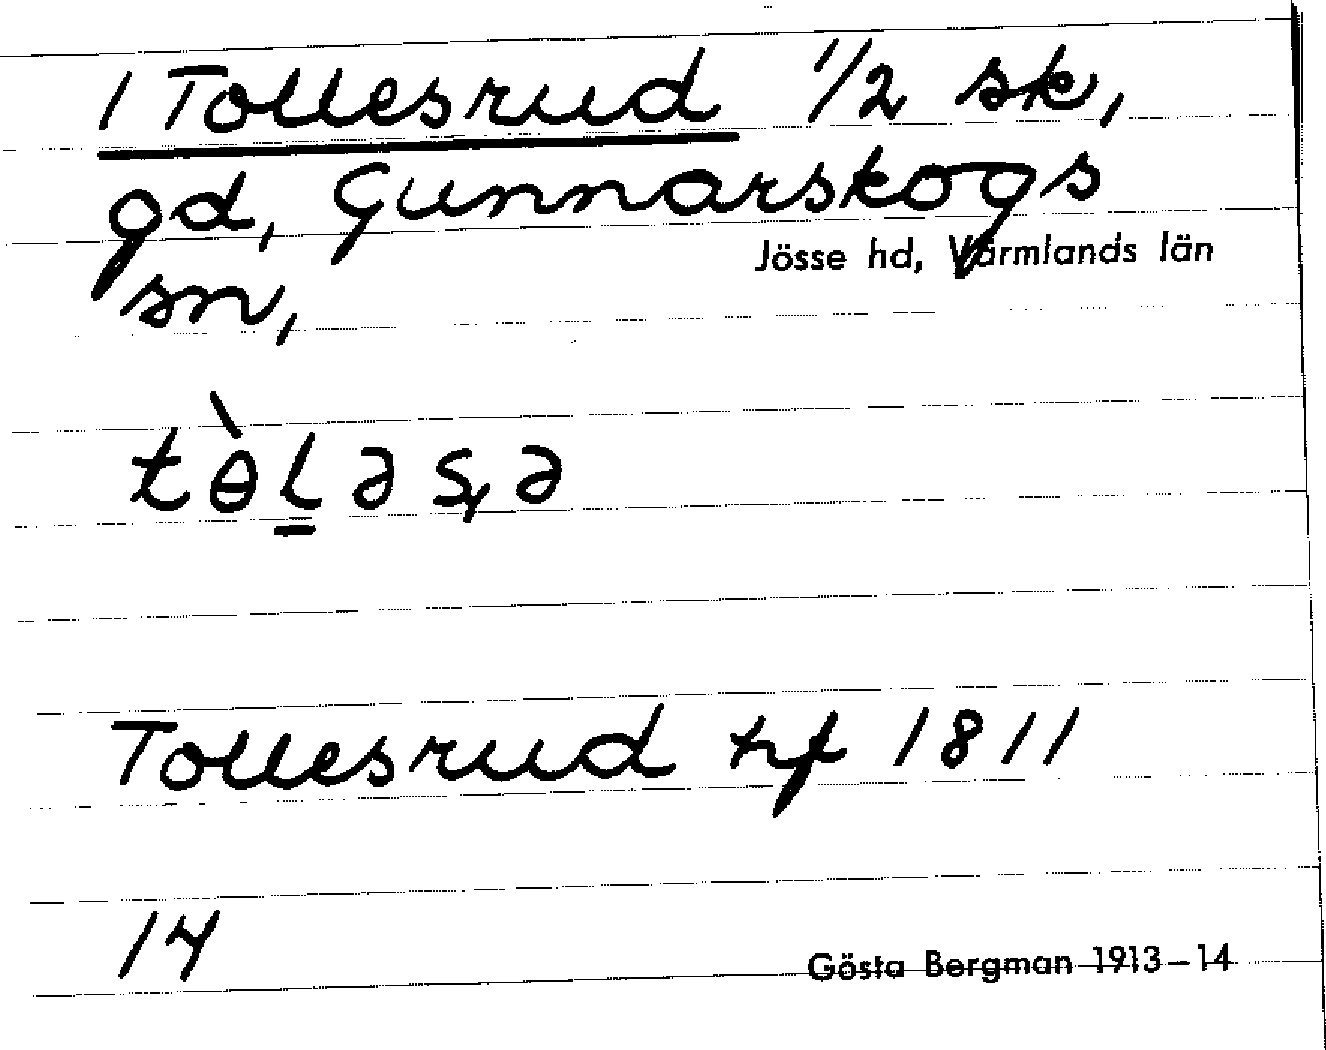 1 Tollesrud 1/2 sk,
gd, Gunnarskogs
Jösse hd, Värmlands län
sn,
tɵ̀ləsˌə
Tollesrud trf 1811
14
Gösta Bergman 1913–14